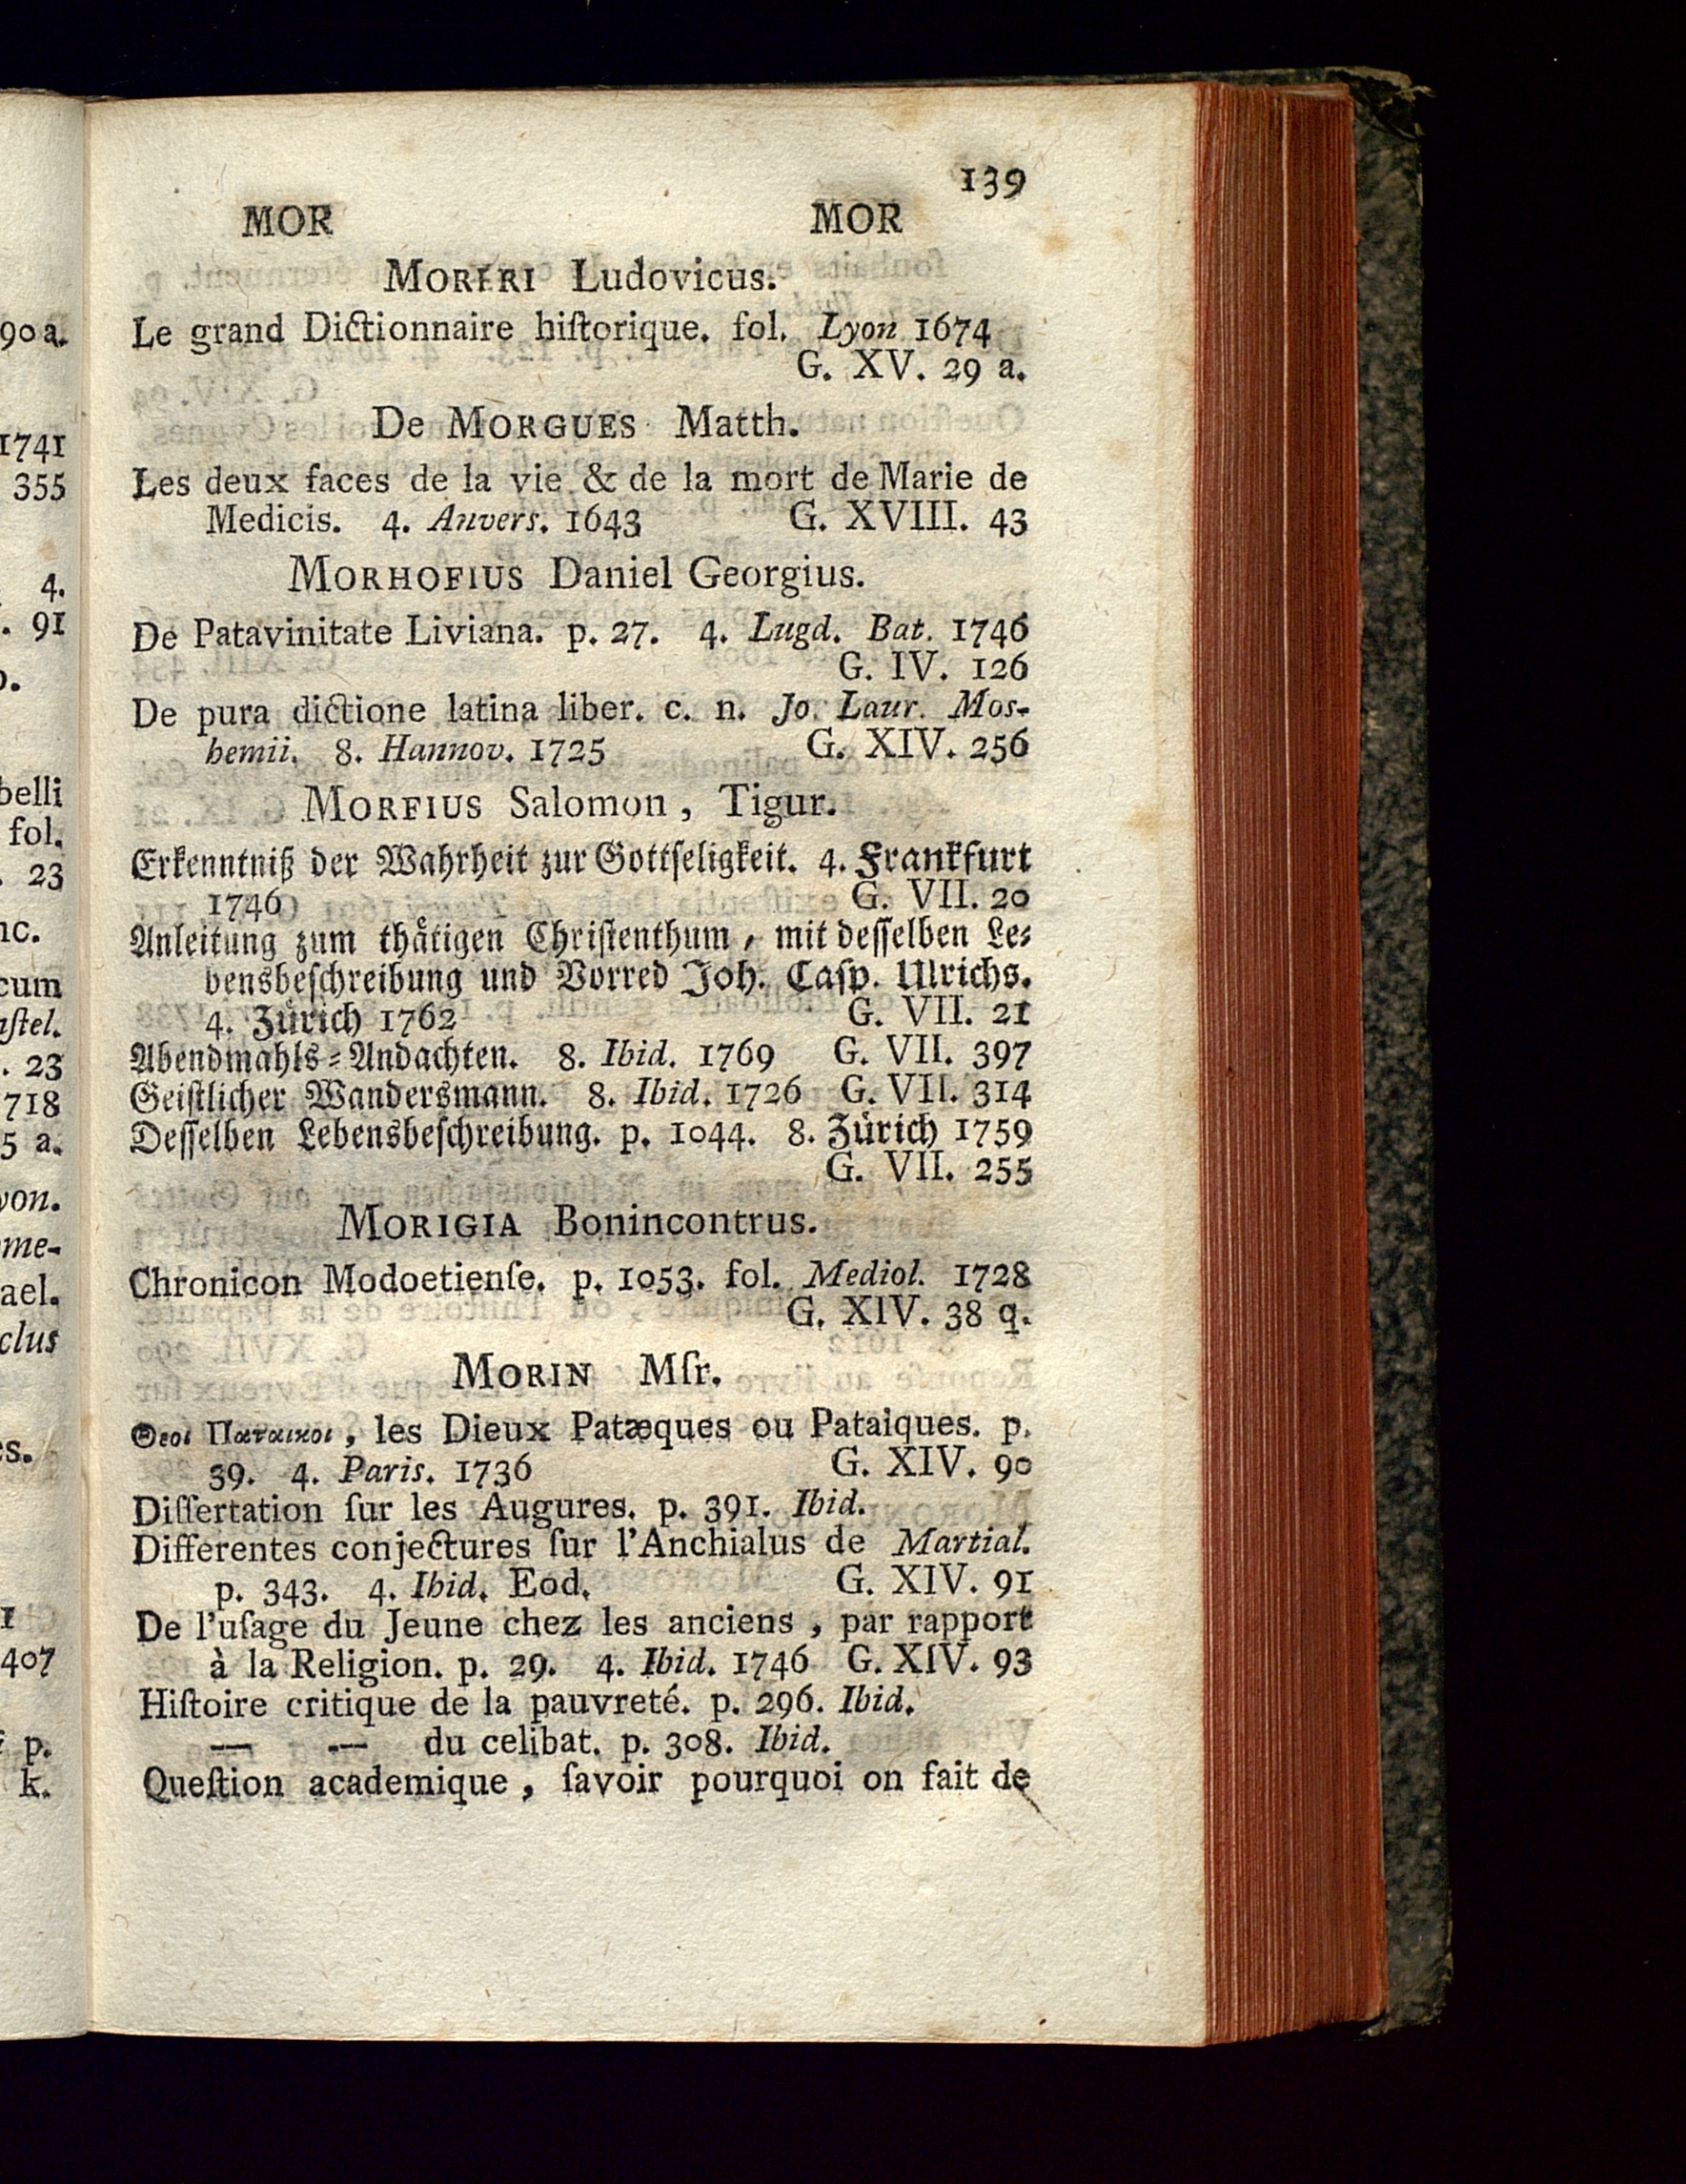 90a.
1741
355
4.
. 91
belli
fol.
. 23
nc.
cum
aſtel.
. 23
718
5 a.
yon.
ome-
ael.
clus
es.
1
407
p.
k.
139
MOR MOR
MORERI Ludovicus.
Le grand Dictionnaire hiſtorique. fol. Lyon 1674
G. XV. 29 a.
De MORGUES Matth.
Les deux faces de la vie & de la mort de Marie de
Medicis. 4. Anvers. 1643 G. XVIII. 43
MORHOFIUS Daniel Georgius.
De Patavinitate Liviana. p. 27. 4. Lugd. Bat. 1746
G. IV. 126
De pura dictione latina liber. c. n. Jo. Laur. Mos-
hemii. 8. Hannov. 1725 G. XIV. 256
MORFIUS Salomon, Tigur.
Erkenntniß der Wahrheit zur Gottſeligkeit. 4. Frankfurt
1746 G. VII. 20
Anleitung zum thåtigen Chriſtenthum, mit deſſelben Le-
bensbeſchreibung und Vorred Joh. Caſp. Ulrichs.
4. Zürich 1762 G. VII. 21
Abendmahls-Andachten. 8. Ibid. 1769 G. VII. 397
Geiſtlicher Wandersmann. 8. Ibid. 1726 G. VII. 314
Deſſelben Lebensbeſchreibung. p. 1044. 8. Zürich 1759
G. VII. 255
MORIGIA Bonincontrus.
Chronicon Modoetienſe. p. 1053. fol. Mediol. 1728
G. XIV. 38 q.
MORIN Mſr.
Θεοι Παταικοι, les Dieux Patæques ou Pataiques. p.
39. 4. Paris. 1736 G. XIV. 90
Diſſertation ſur les Augures. p. 391. Ibid.
Differentes conjectures ſur l'Anchialus de Martial.
p. 343. 4. Ibid. Eod. G. XIV. 91
De l'uſage du Jeune chez les anciens, par rapport
à la Religion. p. 29. 4. Ibid. 1746 G. XIV. 93
Hiſtoire critique de la pauvreté. p. 296. Ibid.
— — du celibat. p. 308. Ibid.
Queſtion academique, ſavoir pourquoi on fait de